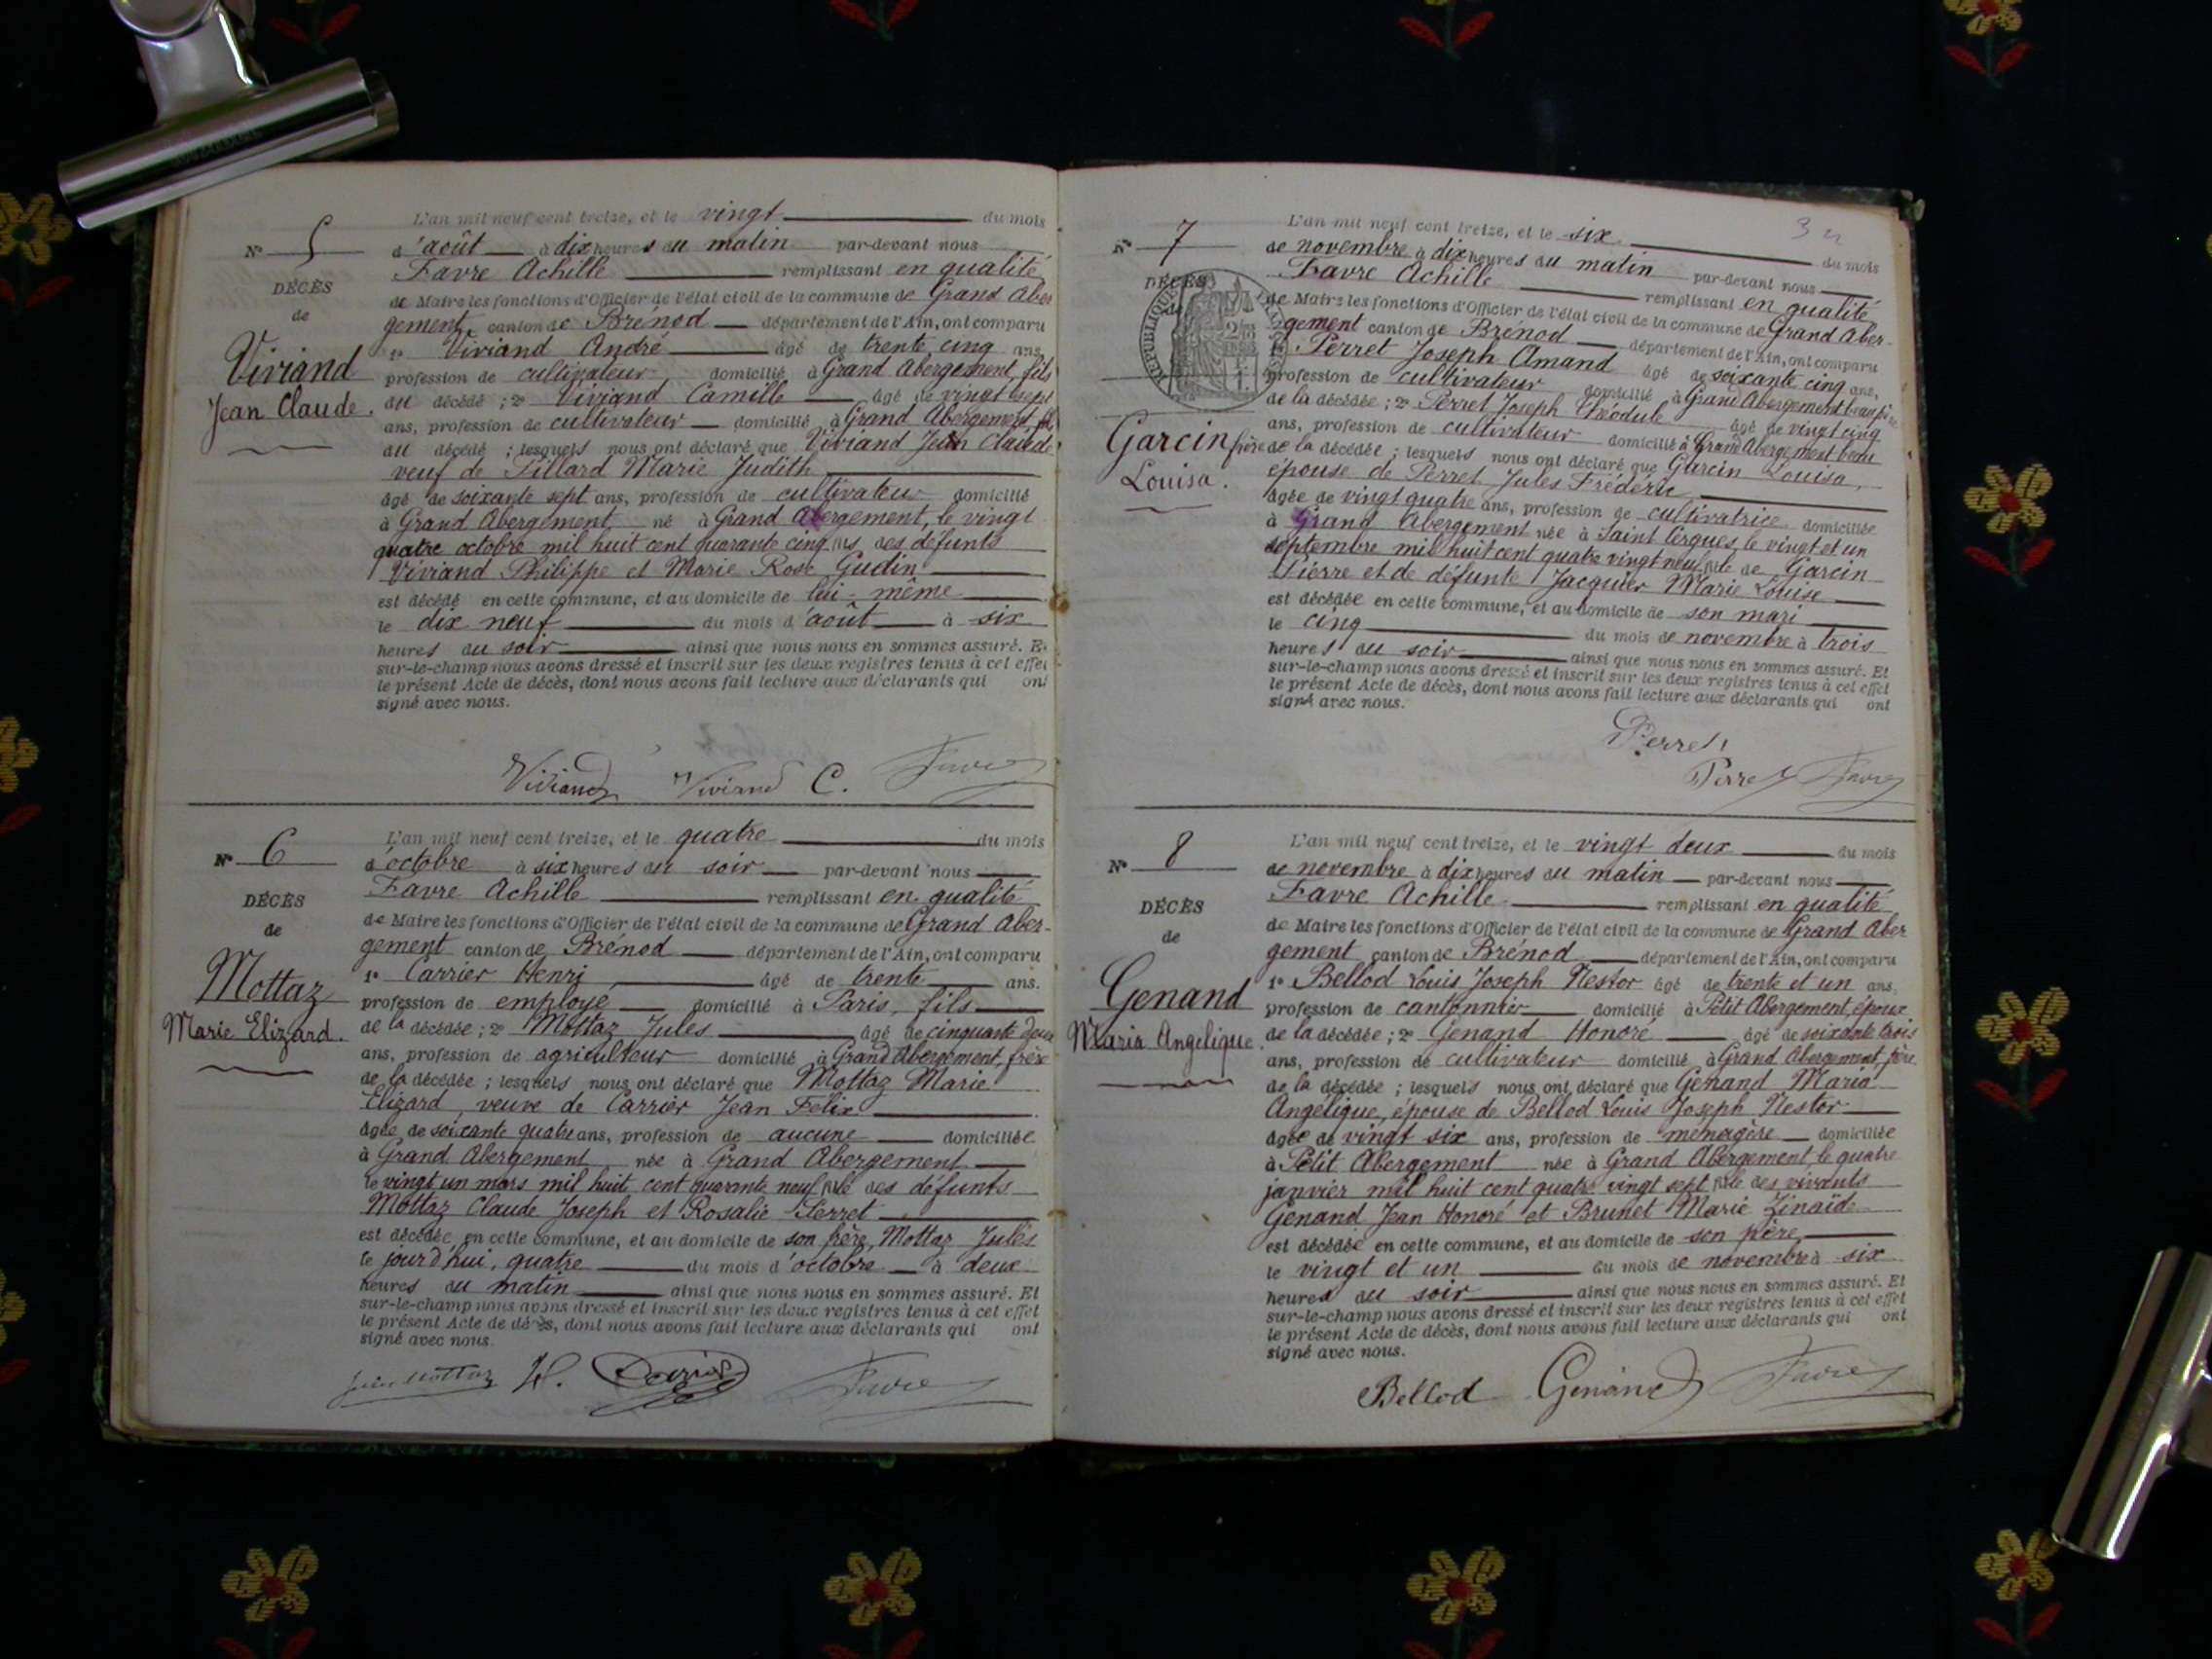 L'an mil neuf cent treize, et le vingt du mois
N° 5 d'août à dix heures du matin par-devant nous
Favre Achille remplissant en qualité
DÉCÈS
de Maire les fonctions d'Officier de l'état civil de la commune de Grand Aber
de
gement canton de Brénod département de l'Ain, ont comparu
Viviand
1° Viviand André âgé de trente cinq ans,
profession de cultivateur domicilié à Grand Abergement, fils
Jean Claude.
du décédé ; 2° Viviand Camille âgé de vingt sept
ans, profession de cultivateur domicilié à Grand Abergement, fils
du décédé ; lesquels nous ont déclaré que Viviand Jean Claude
veuf de Pillard Marie Judith
âgé de soixante sept ans, profession de cultivateur domicilié
à Grand Abergement, né à Grand Abergement, le vingt
quatre octobre mil huit cent quarante cinq fils des défunts
Viviand Philippe et Marie Rose Gudin
est décédé en cette commune, et au domicile de lui-même
le dix neuf du mois d'août à six
heures du soir ainsi que nous nous en sommes assuré. Et
sur-le-champ nous avons dressé et inscrit sur les deux registres tenus à cet effet
le présent Acte de décès, dont nous avons fait lecture aux déclarants qui ont
signé avec nous.
Viviand Viviand C. Favre
L'an mil neuf cent treize, et le quatre du mois
N° 6 d'octobre à six heures du soir par-devant nous
Favre Achille remplissant en qualité
DÉCÈS
de Maire les fonctions d'Officier de l'état civil de la commune de Grand Aber-
de
gement canton de Brénod département de l'Ain, ont comparu
Mottaz
1° Carrier Henri âgé de trente ans,
profession de employé domicilié à Paris, fils
Marie Elizard.
de la décédée ; 2° Mottaz Jules âgé de cinquante deux
ans, profession de agriculteur domicilié à Grand Abergement, frère
de la décédée ; lesquels nous ont déclaré que Mottaz Marie
Elizard, veuve de Carrier Jean Félix
âgée de soixante quatre ans, profession de aucune domiciliée
à Grand Abergement née à Grand Abergement
le vingt un mars mil huit cent quarante neuf fille des défunts
Mottaz Claude Joseph et Rosalie Perret
est décédée en cette commune, et au domicile de son frère, Mottaz Jules
le jourd'hui, quatre du mois d'octobre à deux
heures du matin ainsi que nous nous en sommes assuré. Et
sur-le-champ nous avons dressé et inscrit sur les deux registres tenus à cet effet
le présent Acte de décès, dont nous avons fait lecture aux déclarants qui ont
signé avec nous.
Jules Mottaz H. Carrier Favre
3
L'an mil neuf cent treize, et le six du mois
N° 7 de novembre à dix heures du matin par-devant nous
Favre Achille remplissant en qualité
DÉCÈS
de Maire les fonctions d'Officier de l'état civil de la commune de Grand Aber-
gement canton de Brénod département de l'Ain, ont comparu
1° Perret Joseph Amand âgé de soixante cinq ans,
profession de cultivateur domicilié à Grand Abergement beau père
de la décédée ; 2° Perret Joseph Théodule âgé de vingt cinq
ans, profession de cultivateur domicilié à Grand Abergement beau
Garcin
frère de la décédée ; lesquels nous ont déclaré que Garcin Louisa,
Louisa.
épouse de Perret Jules Frédéric
âgée de vingt quatre ans, profession de cultivatrice domiciliée
à Grand Abergement née à Saint Cergues, le vingt et un
septembre mil huit cent quatre vingt neuf fille de Garcin
Pierre et de défunte Jacquier Marie Louise
est décédée en cette commune, et au domicile de son mari
le cinq du mois de novembre à trois
heures du soir ainsi que nous nous en sommes assuré. Et
sur-le-champ nous avons dressé et inscrit sur les deux registres tenus à cet effet
le présent Acte de décès, dont nous avons fait lecture aux déclarants qui ont
signé avec nous.
Perret
Perret Favre
L'an mil neuf cent treize, et le vingt deux du mois
N° 8 de novembre à dix heures du matin par-devant nous
Favre Achille remplissant en qualité
DÉCÈS
de Maire les fonctions d'Officier de l'état civil de la commune de Grand Aber
de
gement canton de Brénod département de l'Ain, ont comparu
Genand
1° Bellod Louis Joseph Nestor âgé de trente et un ans,
profession de cantonnier domicilié à Petit Abergement, époux
Maria Angelique.
de la décédée ; 2° Genand Honoré âgé de soixante trois
ans, profession de cultivateur domicilié à Grand Abergement, père
de la décédée ; lesquels nous ont déclaré que Genand Maria
Angélique, épouse de Bellod Louis Joseph Nestor
âgée de vingt six ans, profession de ménagère domiciliée
à Petit Abergement née à Grand Abergement le quatre
janvier mil huit cent quatre vingt sept fille des vivants
Genand Jean Honoré et Brunet Marie Zénaïde
est décédée en cette commune, et au domicile de son père,
le vingt et un du mois de novembre à six
heures du soir ainsi que nous nous en sommes assuré. Et
sur-le-champ nous avons dressé et inscrit sur les deux registres tenus à cet effet
le présent Acte de décès, dont nous avons fait lecture aux déclarants qui ont
signé avec nous.
Bellod Genand Favre